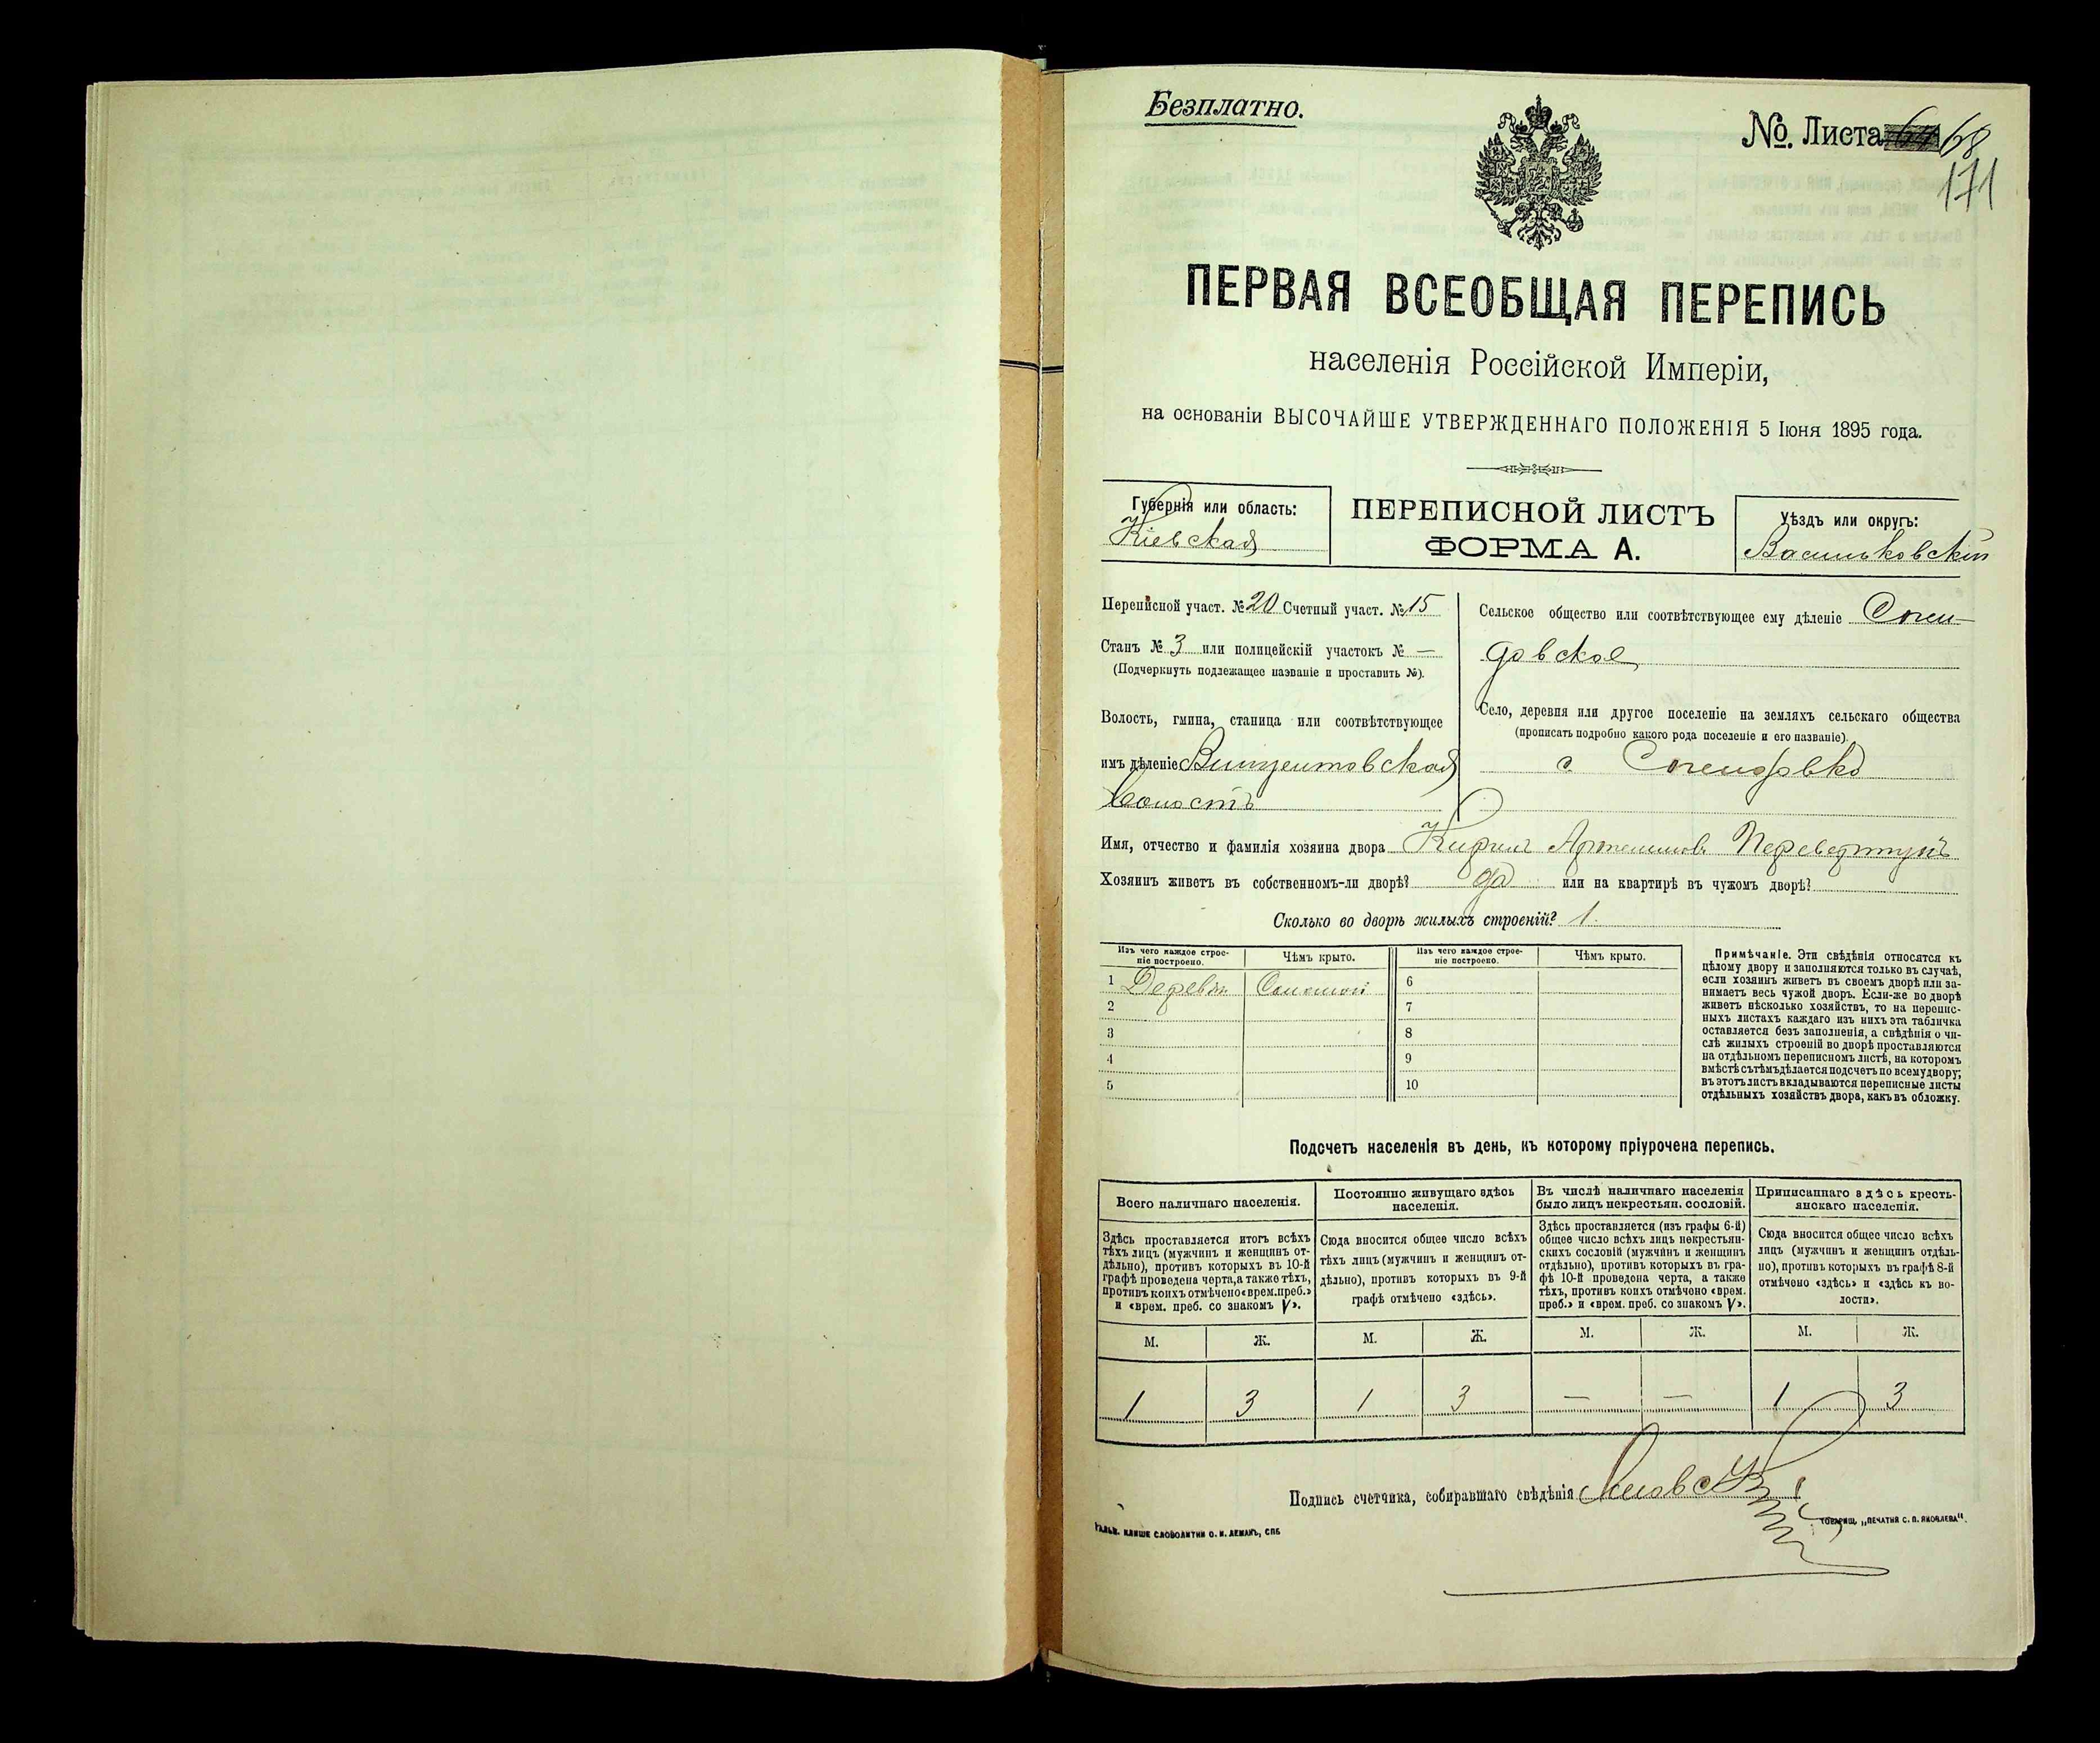 Безплатно.
№. Листа 68
171
ПЕРВАЯ ВСЕОБЩАЯ ПЕРЕПИСЬ
населенія Россійской Имперіи,
на основаніи ВЫСОЧАЙШЕ УТВЕРЖДЕННАГО ПОЛОЖЕНІЯ 5 Іюня 1895 года.
Губернія или область:
Кіевская
ПЕРЕПИСНОЙ ЛИСТЪ
ФОРМА А.
Уѣздъ или округъ:
Васильковскій
Переписной участ. № 20 Счетный участ. № 15
Станъ № 3 или полицейскій участокъ № —
(Подчеркнуть подлежащее названіе и проставить №).
Волость, гмина, станица или соотвѣтствующее
имъ дѣленіе Винцентовская
волость
Сельское общество или соотвѣтствующее ему дѣленіе
довское
Село, деревня или другое поселеніе на земляхъ сельскаго общества
(прописать подробно какого рода поселеніе и его названіе).
с.
Имя, отчество и фамилія хозяина двора Кирилъ Артемиовъ Перевертунъ
Хозяинъ живетъ въ собственномъ-ли дворѣ? да или на квартирѣ въ чужомъ дворѣ?
Сколько во дворѣ жилыхъ строеній? 1.
Изъ чего каждое строе-
ніе построено.
Чѣмъ крыто.
Изъ чего каждое строе-
ніе построено.
Чѣмъ крыто.
1 Дерев Соломой 6
2 7
3 8
4 9
5 10
Примѣчаніе. Эти свѣдѣнія относятся къ
цѣлому двору и заполняются только въ случаѣ,
если хозяинъ живетъ въ своемъ дворѣ или за-
нимаетъ весь чужой дворъ. Если-же во дворѣ
живетъ нѣсколько хозяйствъ, то на перепис-
ныхъ листахъ каждаго изъ нихъ эта табличка
оставляется безъ заполненія, а свѣдѣнія о чи-
слѣ жилыхъ строеній во дворѣ проставляются
на отдѣльномъ переписномъ листѣ, на которомъ
вмѣстѣ съ тѣмъ дѣлается подсчетъ по всему двору;
въ этотъ листъ вкладываются переписные листы
отдѣльныхъ хозяйствъ двора, какъ въ обложку.
Подсчетъ населенія въ день, къ которому пріурочена перепись.
Всего наличнаго населенія.
Здѣсь проставляется итогъ всѣхъ
тѣхъ лицъ (мужчинъ и женщинъ от-
дѣльно), противъ которыхъ въ 10-й
графѣ проведена черта, а также тѣхъ,
противъ коихъ отмѣчено «врем. преб.»
и «врем. преб. со знакомъ V».
Постоянно живущаго здѣсь
населенія.
Сюда вносится общее число всѣхъ
тѣхъ лицъ (мужчинъ и женщинъ от-
дѣльно), противъ которыхъ въ 9-й
графѣ отмѣчено «здѣсь».
Въ числѣ наличнаго населенія
было лицъ некрестьян. сословій.
Здѣсь проставляется (изъ графы 6-й)
общее число всѣхъ лицъ некрестьян-
скихъ сословій (мужчинъ и женщинъ
отдѣльно), противъ которыхъ въ гра-
фѣ 10-й проведена черта, а также
тѣхъ, противъ коихъ отмѣчено «врем.
преб.» и «врем. преб. со знакомъ V».
Приписаннаго здѣсь кресть-
янскаго населенія.
Сюда вносится общее число всѣхъ
лицъ (мужчинъ и женщинъ отдѣль-
но), противъ которыхъ въ графѣ 8-й
отмѣчено «здѣсь» и «здѣсь къ во-
лости».
М. Ж. М. Ж. М. Ж. М. Ж.
1 3 1 3 — — 1 3
Подпись счетчика, собиравшаго свѣдѣнія
Гальв. клише словолитни О. И. Леманъ, СПБ
Товарищ. „Печатня С. П. Яковлева“.